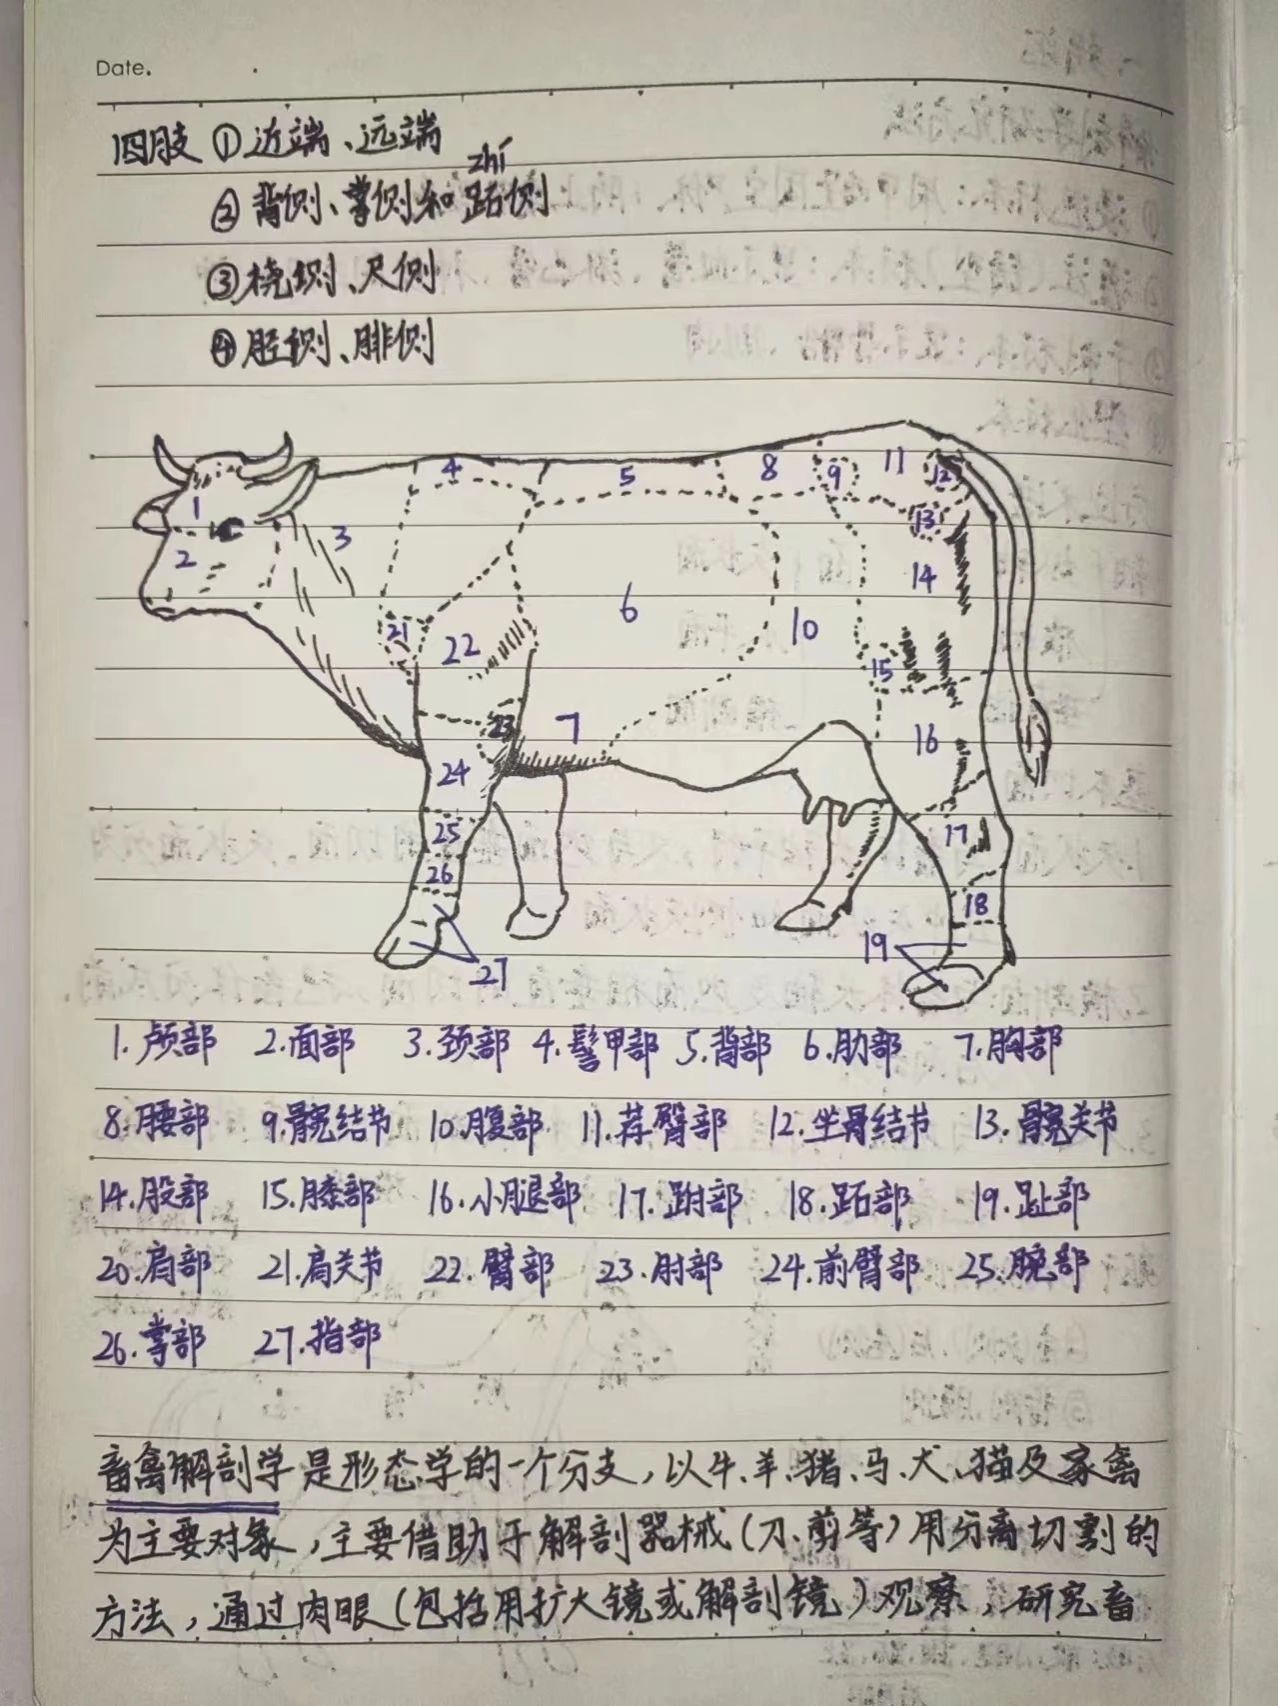 Date.
四肢 ①近端、远端
zhí
②背侧、掌侧和跖侧
③桡侧、尺侧
④胫侧、腓侧
4 5 8 9 11 12
1 2 3 13 14
21 22 6 10 15
23 7 16
24
25 17
26 18
27 19
1.颅部 2.面部 3.颈部 4.鬐甲部 5.背部 6.肋部 7.胸部
8.腰部 9.髋结节 10.腹部 11.荐臀部 12.坐骨结节 13.髋关节
14.股部 15.膝部 16.小腿部 17.跗部 18.跖部 19.趾部
20.肩部 21.肩关节 22.臂部 23.肘部 24.前臂部 25.腕部
26.掌部 27.指部
畜禽解剖学是形态学的一个分支，以牛、羊、猪、马、犬、猫及家禽
为主要对象，主要借助于解剖器械（刀、剪等）用分离切割的
方法，通过肉眼（包括用扩大镜或解剖镜）观察，研究畜